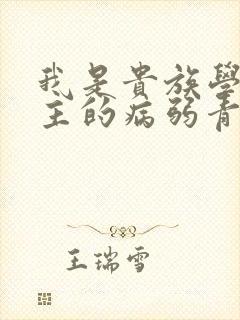 我是貴族學
主的病弱青
王瑞雪